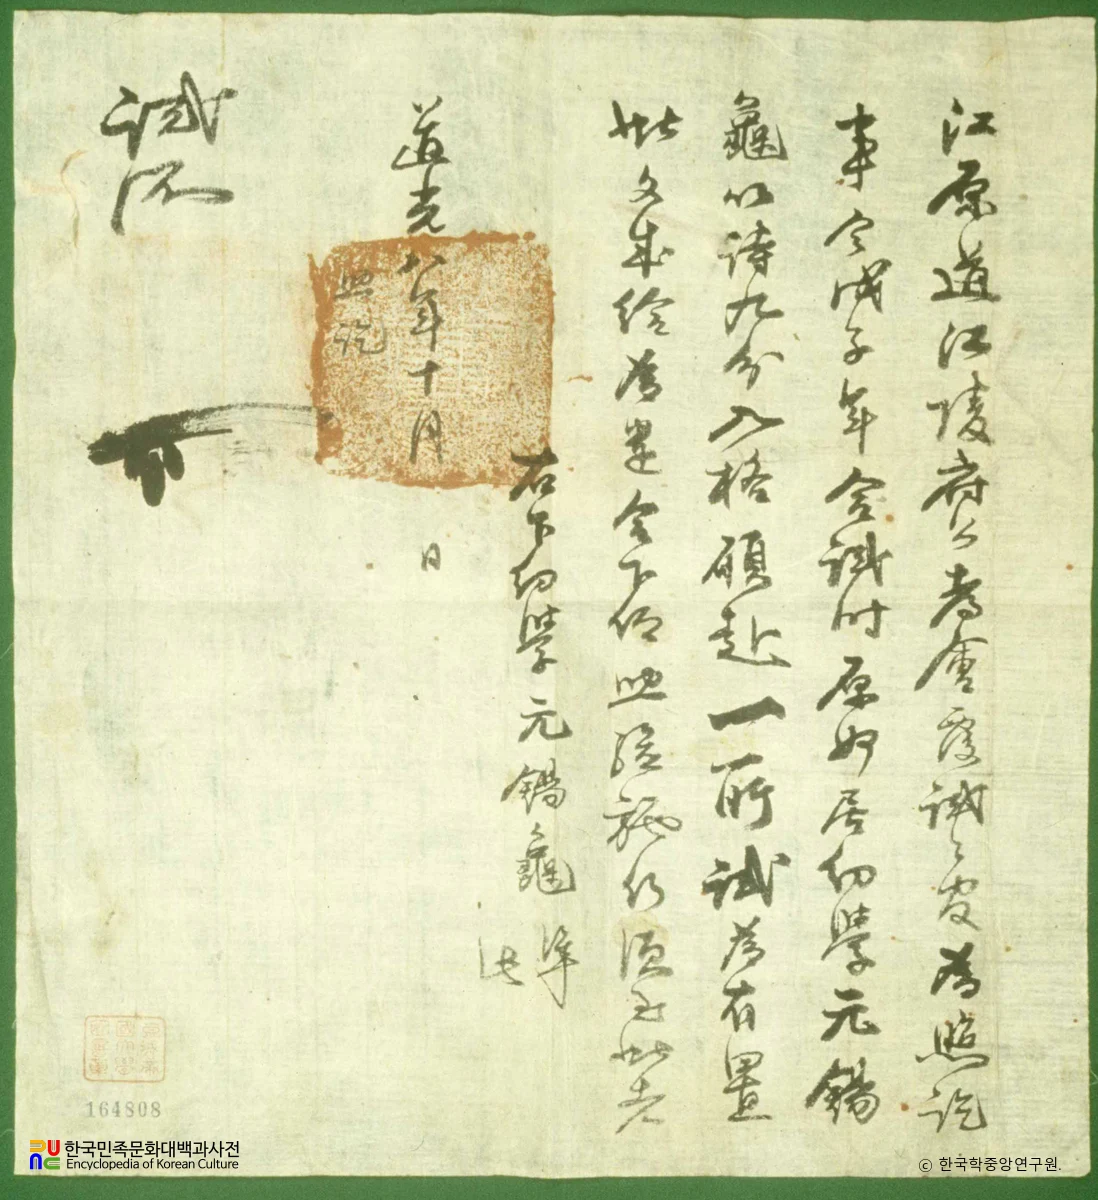 江原道江陵府公都會覆試之官爲照訖
事今戊子年會試時原州居幼學元錫
龜以詩九分入格願赴一所試爲有置
此文成給爲遣合下仰照驗施行須至此者
右下幼學元錫龜 準
此
道光八年十月 日
照訖
試所
164808
한국민족문화대백과사전
Encyclopedia of Korean Culture
ⓒ 한국학중앙연구원.